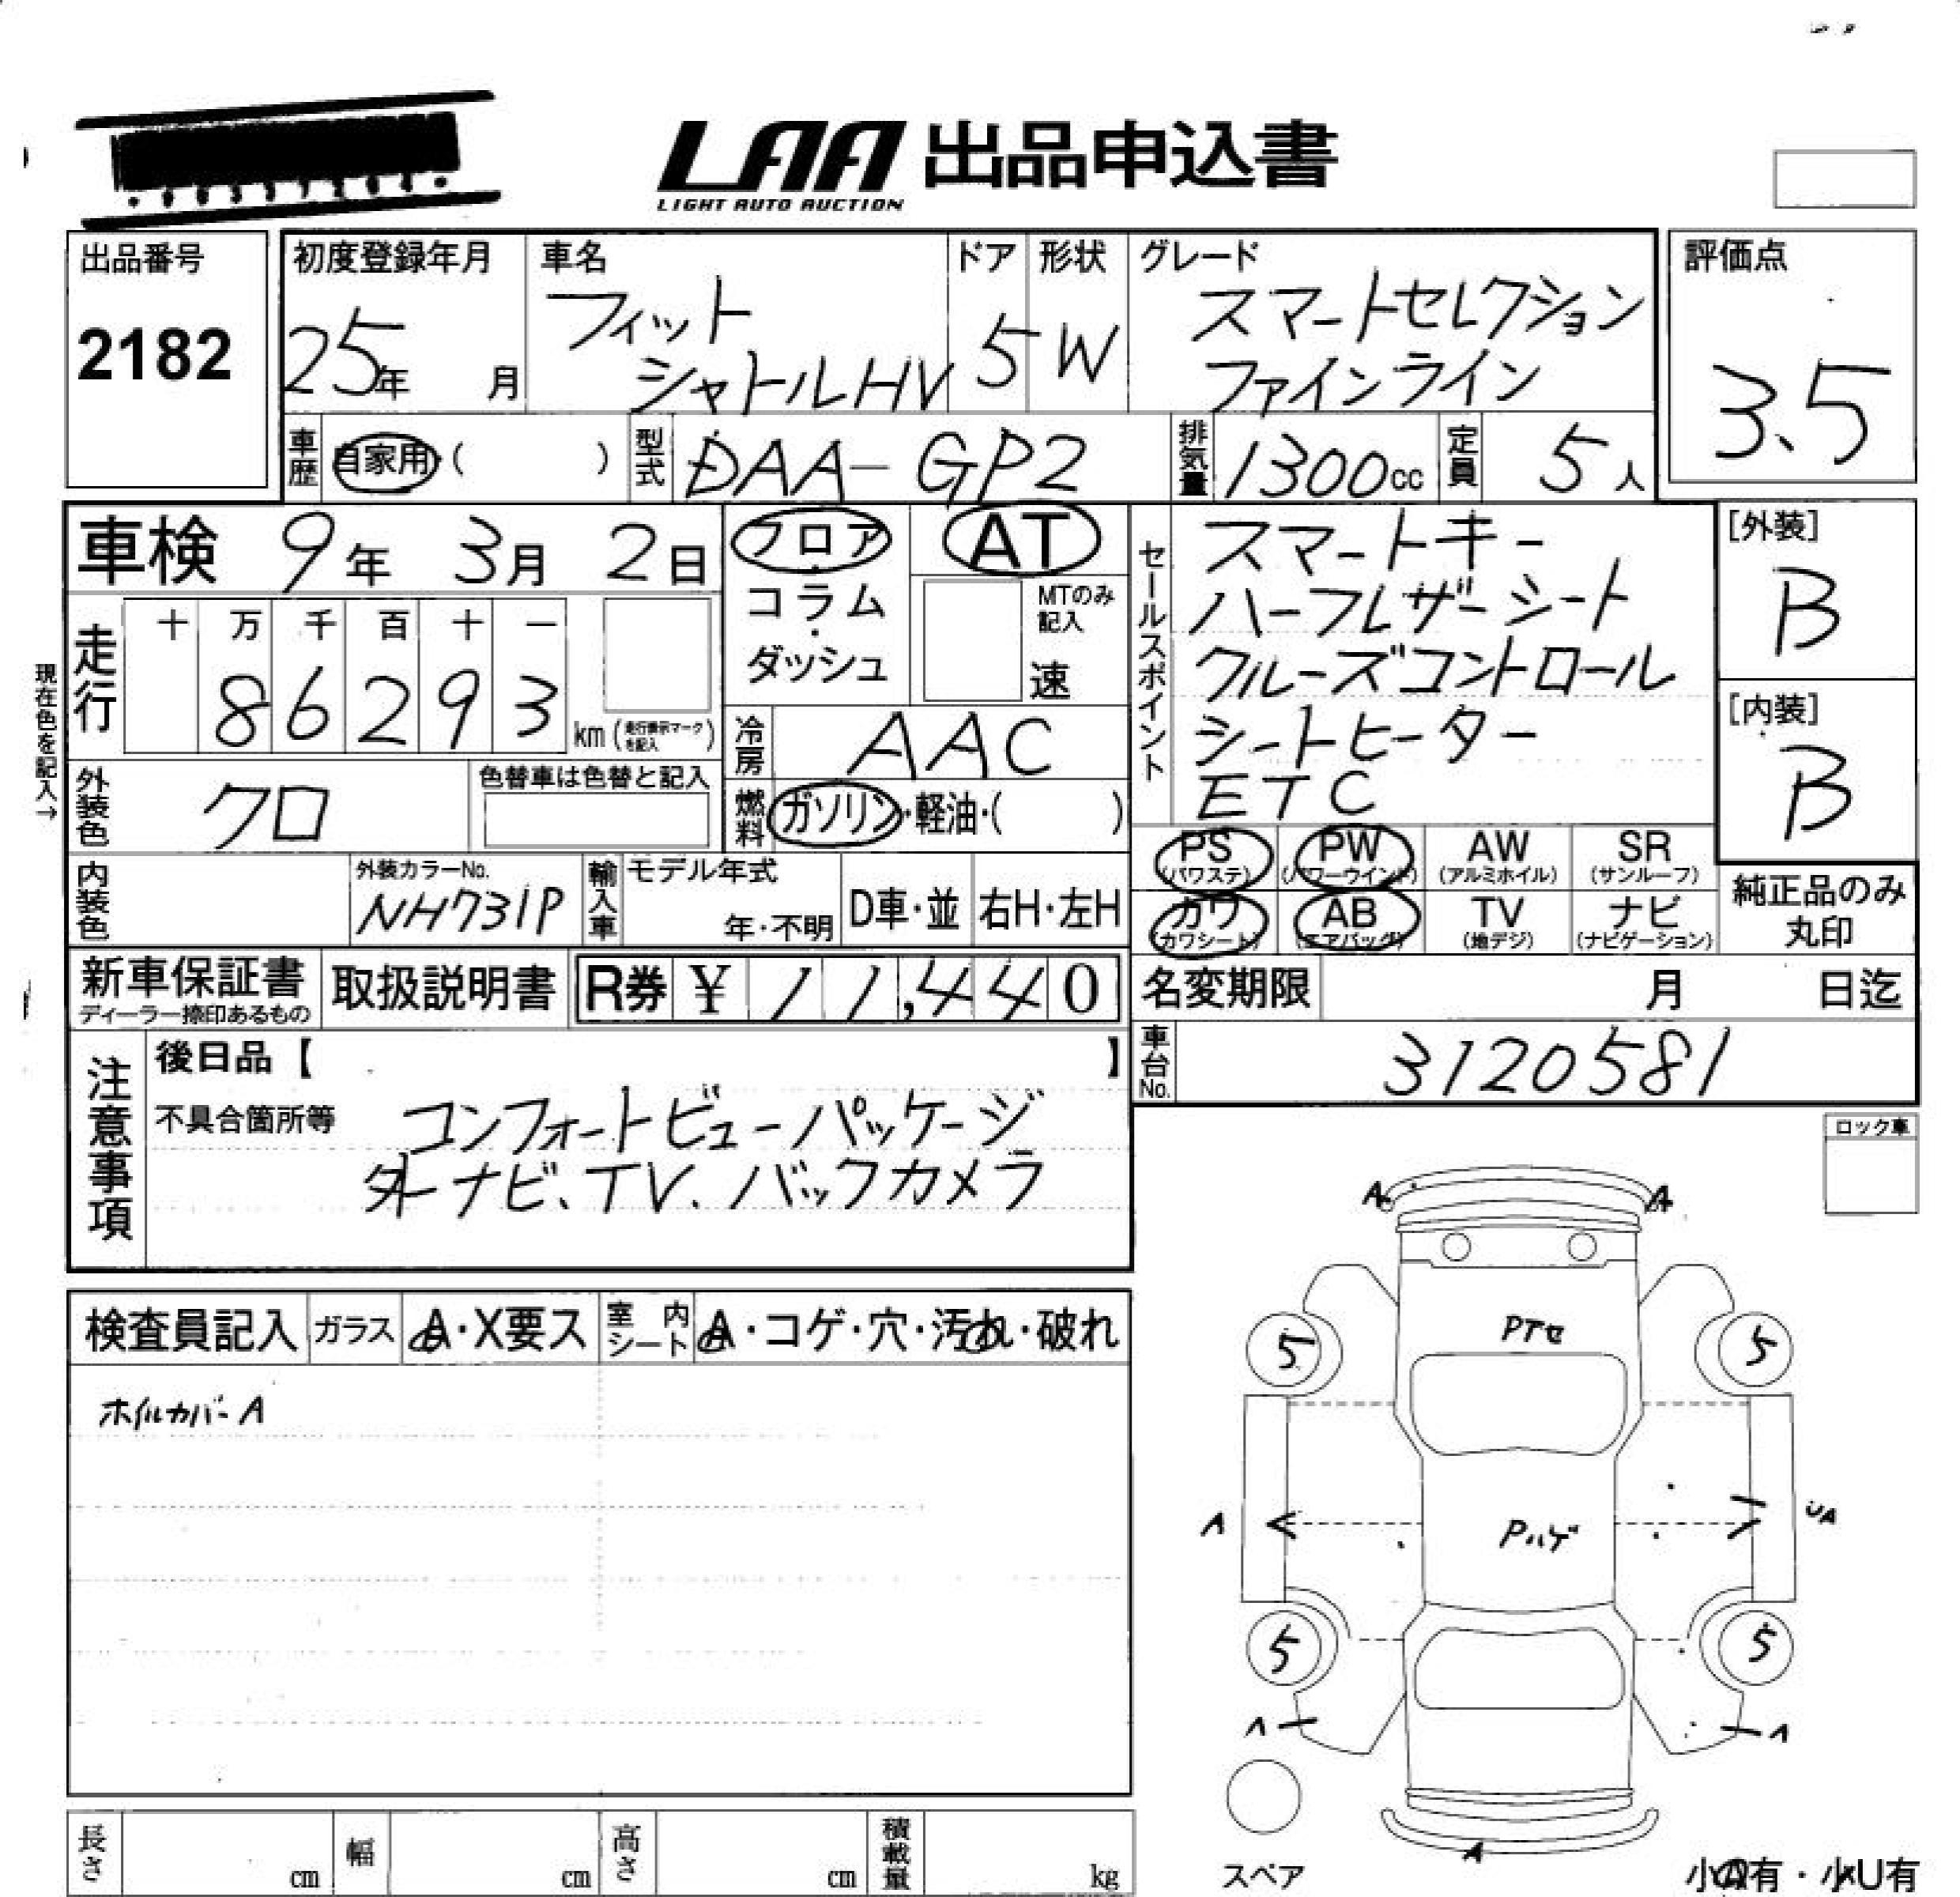 LAA 出品申込書
LIGHT AUTO AUCTION
出品番号
2182
初度登録年月
25年 月
車名
フィット
シャトルHV
ドア
5
形状
W
グレード
スマートセレクション
ファインライン
評価点
3.5
車歴 自家用・( )
型式 DAA-GP2
排気量 1300cc
定員 5人
車検 9年 3月 2日
フロア・
コラム
・
ダッシュ
AT
MTのみ
記入
速
セールスポイント
スマートキー
ハーフレザーシート
クルーズコントロール
シートヒーター
ETC
[外装]
B
[内装]
B
現在色を記入→
走行
十 万 千 百 十 一
8 6 2 9 3
km (走行表示マークを記入)
冷房 AAC
外装色 クロ
色替車は色替と記入
燃料 ガソリン・軽油・( )
PS
(パワステ)
PW
(パワーウインド)
AW
(アルミホイル)
SR
(サンルーフ)
カワ
(カワシート)
AB
(エアバッグ)
TV
(地デジ)
ナビ
(ナビゲーション)
純正品のみ
丸印
内装色
外装カラーNo.
NH731P
輸入車
モデル年式
年・不明
D車・並
右H・左H
新車保証書
ディーラー捺印あるもの
取扱説明書
R券 ¥ 11,440
名変期限 月 日迄
車台No. 3120581
注意事項
後日品【 】
不具合箇所等
コンフォートビューパッケージ
外ナビ、TV、バックカメラ
ロック車
検査員記入
ガラス
A・X要ス
室内
シート
A・コゲ・穴・汚れ・破れ
ホイルカバーA
A A
PTセ
5 5
A Pハゲ UA
5 5
A A
A
スペア
小A有・小U有
長さ cm
幅 cm
高さ cm
積載量 kg